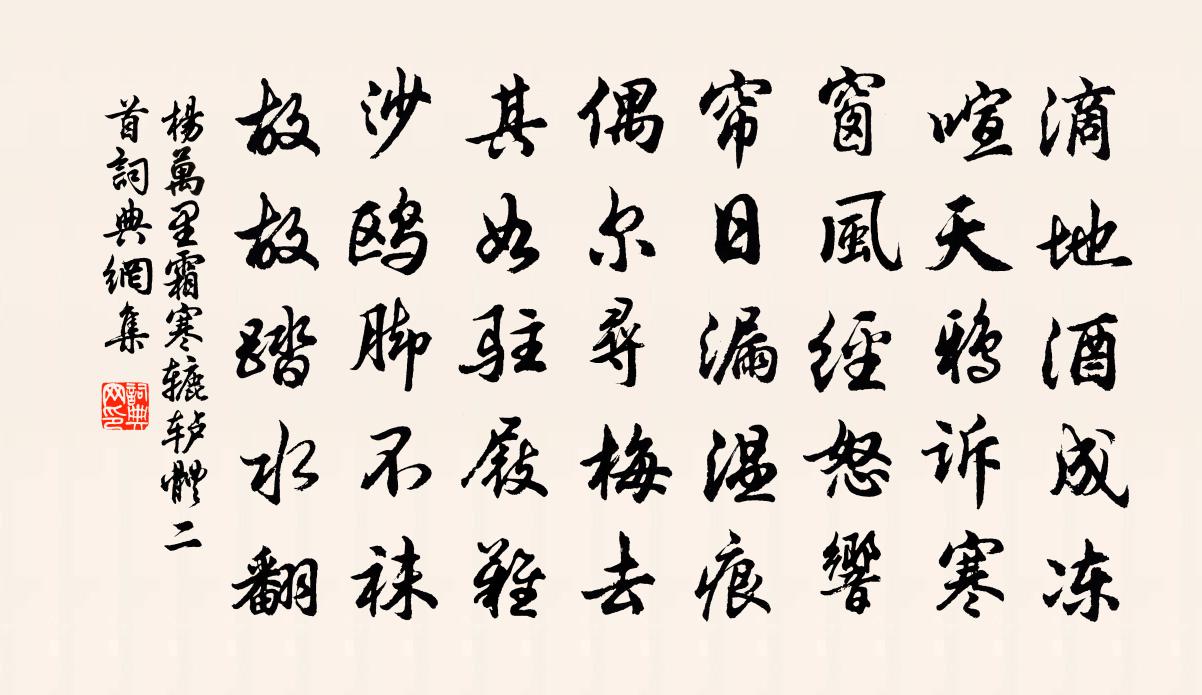 滴地酒成冻
喧天鸦诉寒
窗風經怒響
帘日漏温痕
偶尔尋梅去
其如駐屐難
沙鸥脚不袜
故故踏水翻
楊萬里霜寒辘轳體二
首詞典網集
詞典
网印